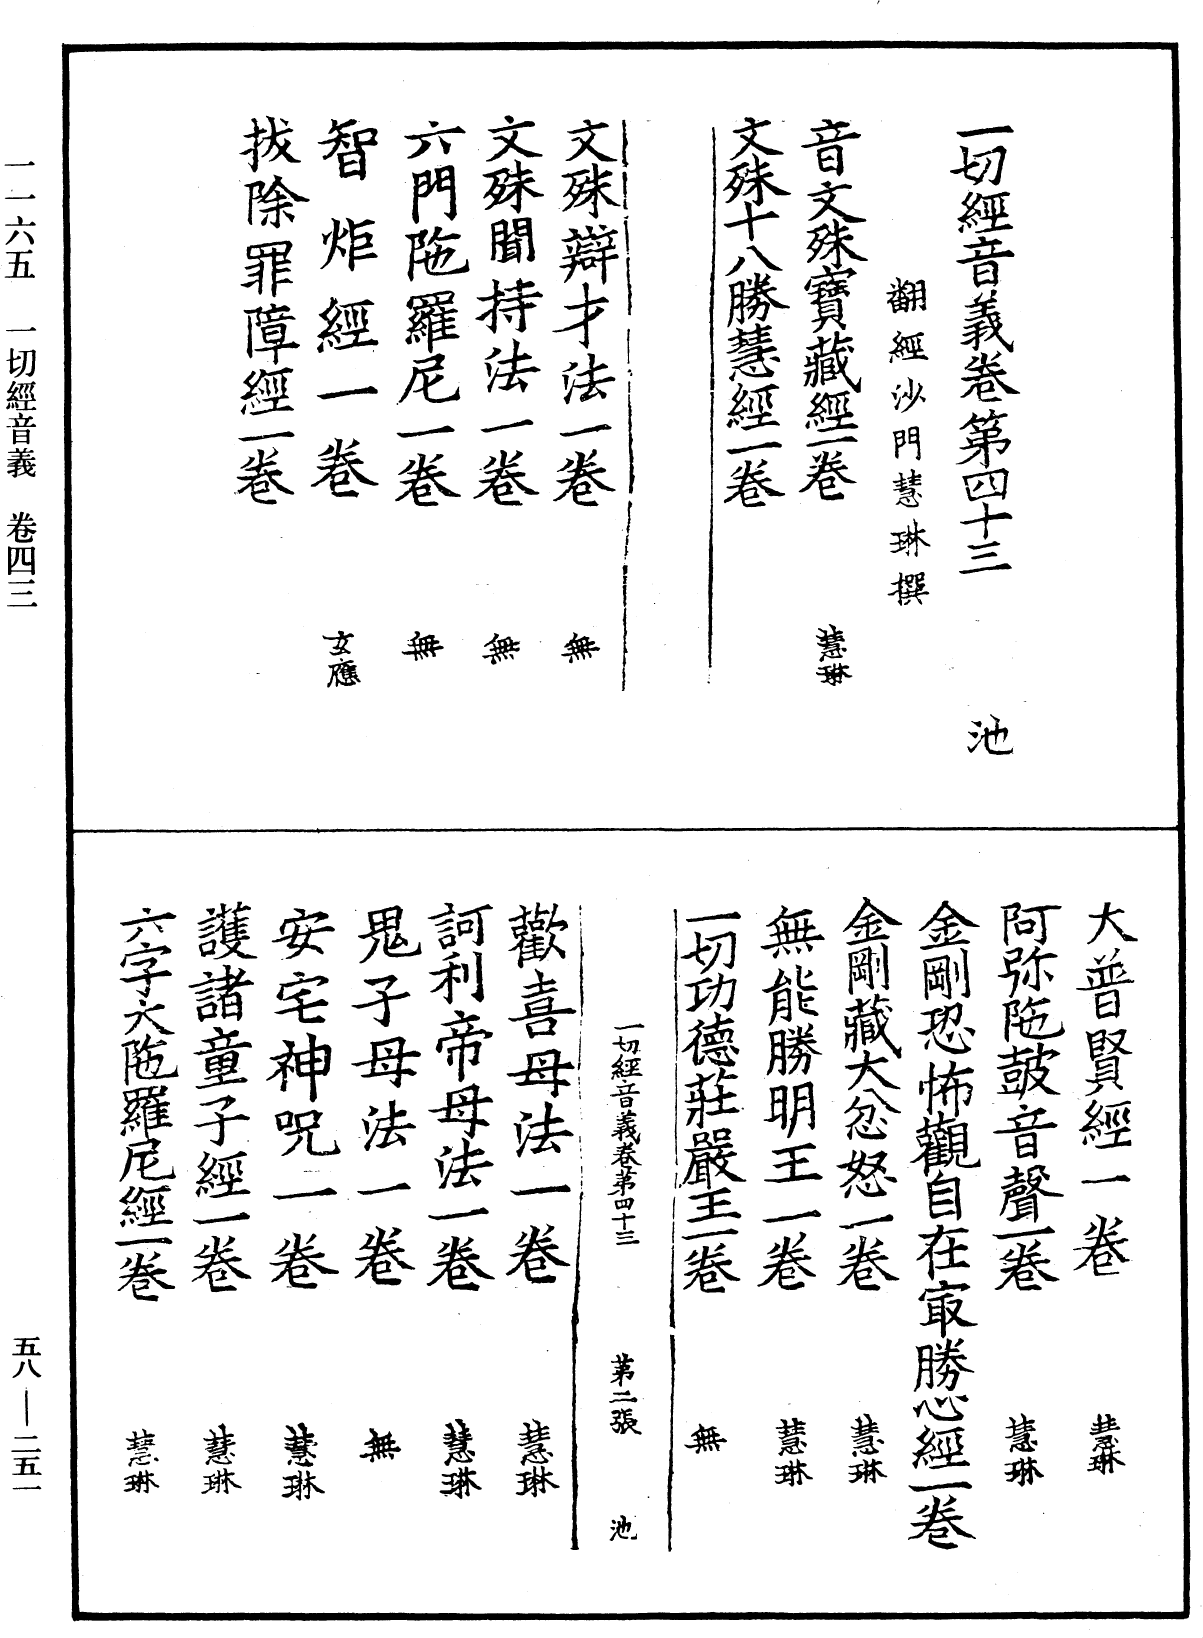 一切經音義卷第四十三 池
翻經沙門慧琳撰
音文殊寶藏經一卷 慧琳
文殊十八勝慧經一卷
文殊辯才法一卷 無
文殊聞持法一卷 無
六門陁羅尼一卷 無
智炬經一卷 玄應
拔除罪障經一卷
大普賢經一卷 慧琳
阿弥陁皷音聲一卷 慧琳
金剛恐怖觀自在㝡勝心經一卷
金剛藏大忿怒一卷 慧琳
無能勝明王一卷 慧琳
一切功德莊嚴王一卷 無
一切經音義卷第四十三 第二張 池
歡喜母法一卷 慧琳
訶利帝母法一卷 慧琳
鬼子母法一卷 無
安宅神呪一卷 慧琳
護諸童子經一卷 慧琳
六字大陁羅尼經一卷 慧琳
一一六五 一切經音義 卷四三
五八—二五一